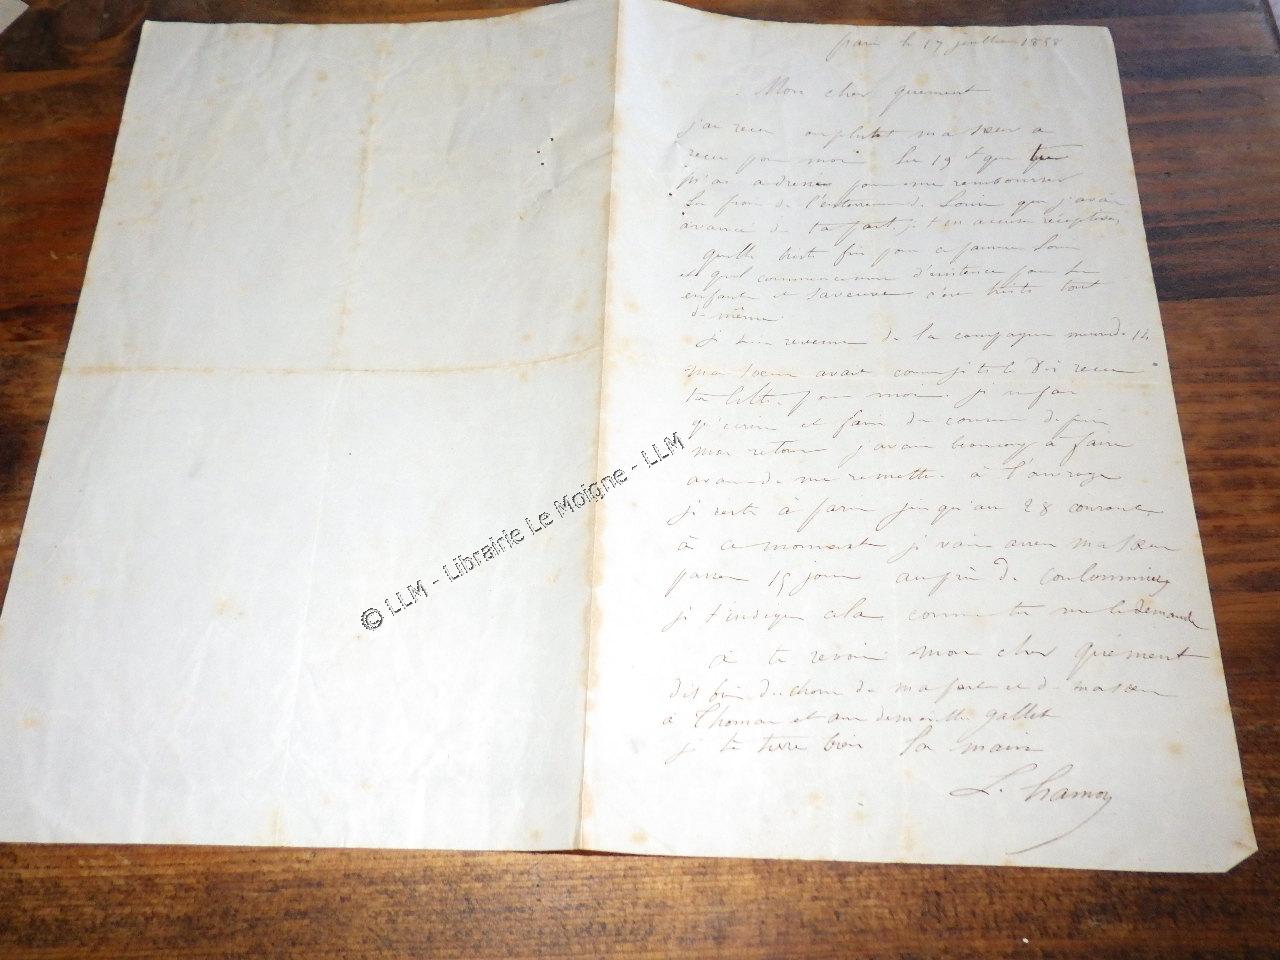 paris le 17 juillet 1858
Mon cher quement
j'ai recu ou plutot ma soeur a
recu pour moi les 19 f que tu
m'as adressés pour me rembourser
les frais de l'enterrement de Louis que j'avais
avancé de ta part, je t'en accuse réception,
quelle triste fin pour ce pauvre Louis
et quel commencement d'existence pour les
enfants et sa veuve c'est triste tout
de même
je suis revenu de la campagne mercredi 14
ma soeur avait comme je te le dis recu
ta lettre pour moi. je ne fais
qu'écrire et faire des courses depuis
mon retour j'avais beaucoup à faire
avant de me remettre à l'ouvrage
je reste à paris jusqu'au 28 courant.
à ce moment je vais avec ma soeur
passer 15 jours auprès de coulommiers
je t'indique cela comme tu me le demande
à te revoir mon cher quement
dis bien des choses de ma part et de ma soeur
à Thomas et aux demoiselles gallet
je te serre bien la main
L. hamon
© LLM - Librairie Le Moigne - LLM